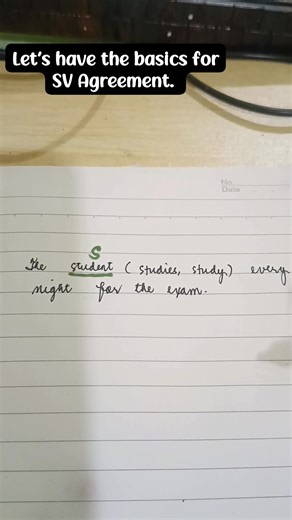 Let's have the basics for
SV Agreement.
No.
Date
S
The student ( studies, study) every
night for the exam.